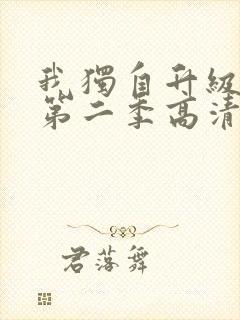 我獨自升級
第二季高清
君落舞